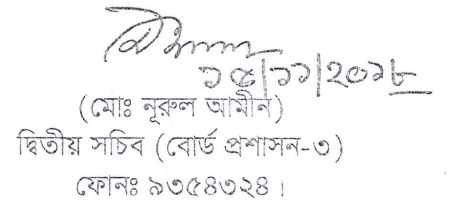 ১৫/১১/২০১৮
(মোঃ নূরুল আমীন)
দ্বিতীয় সচিব (বোর্ড প্রশাসন-৩)
ফোনঃ ৯৩৫৪৩২৪।